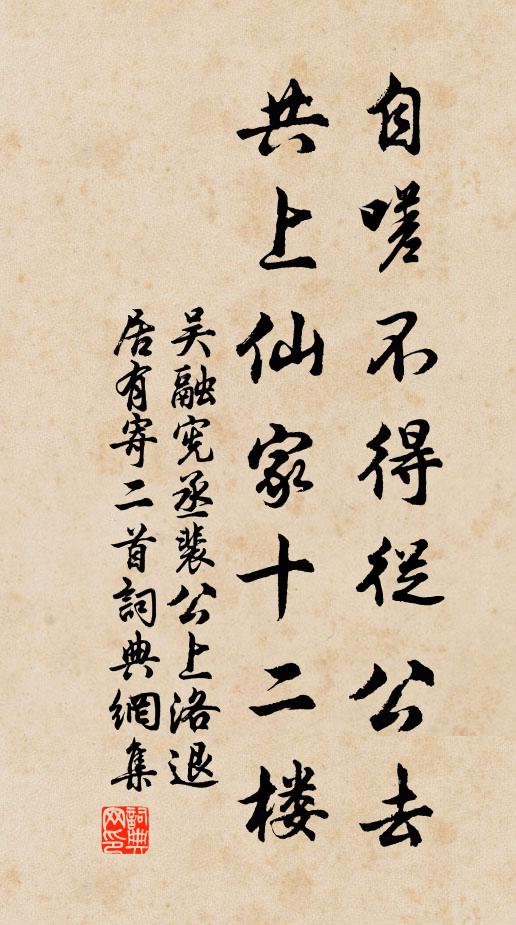 自嗟不得從公去
共上仙家十二楼
吴融宪丞裴公上洛退
居有寄二首詞典網集
詞典网印